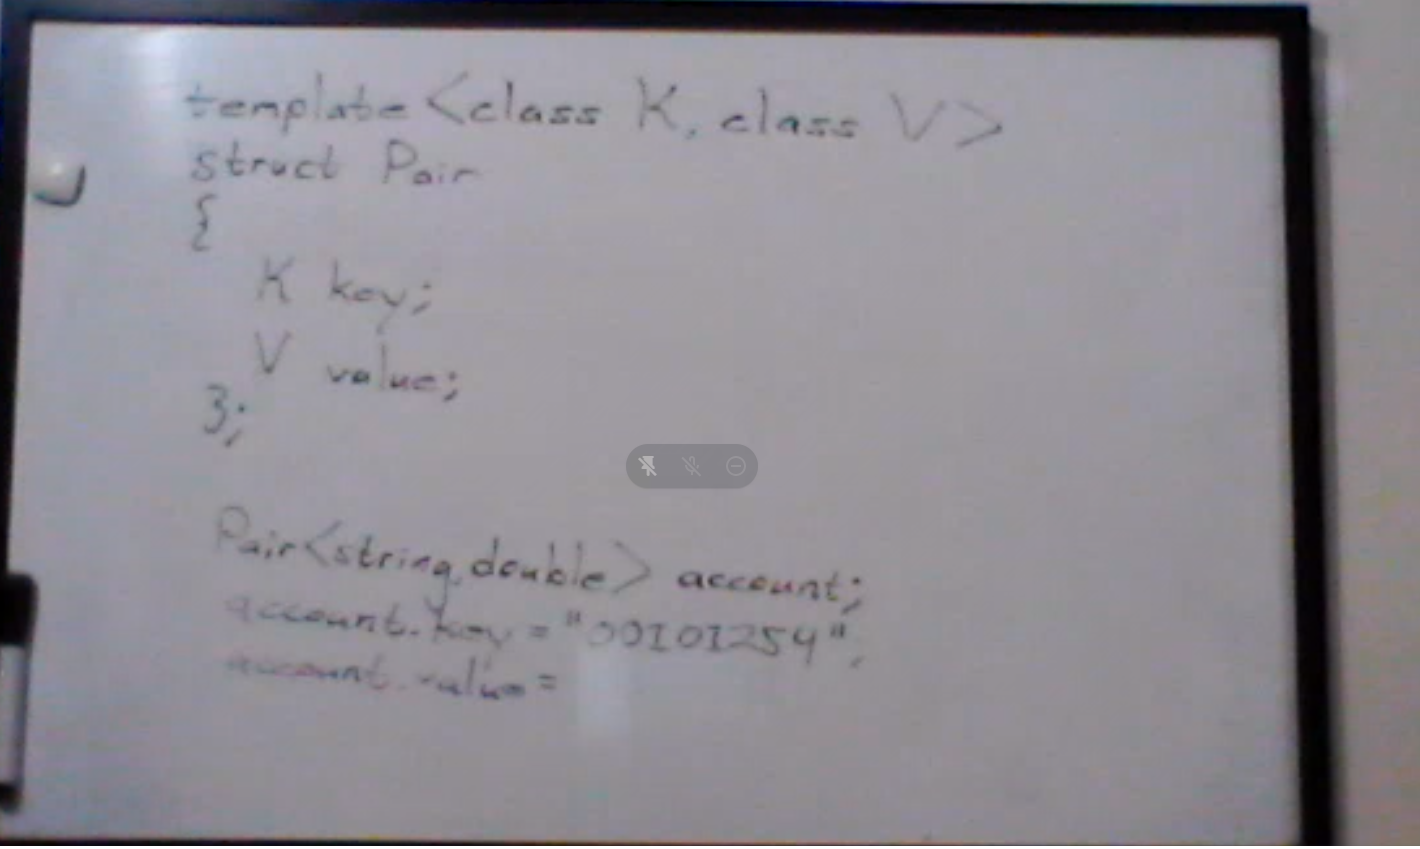 template <class K, class V>
struct Pair
{
K key;
V value;
};
Pair<string, double> account;
account.key = "00101254";
account.value =